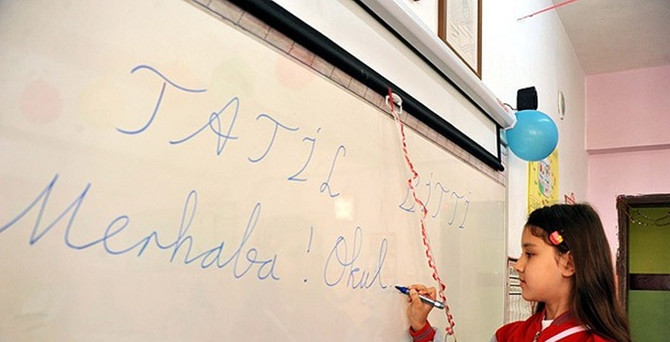 TATİL BİTTİ
Merhaba! Okul..